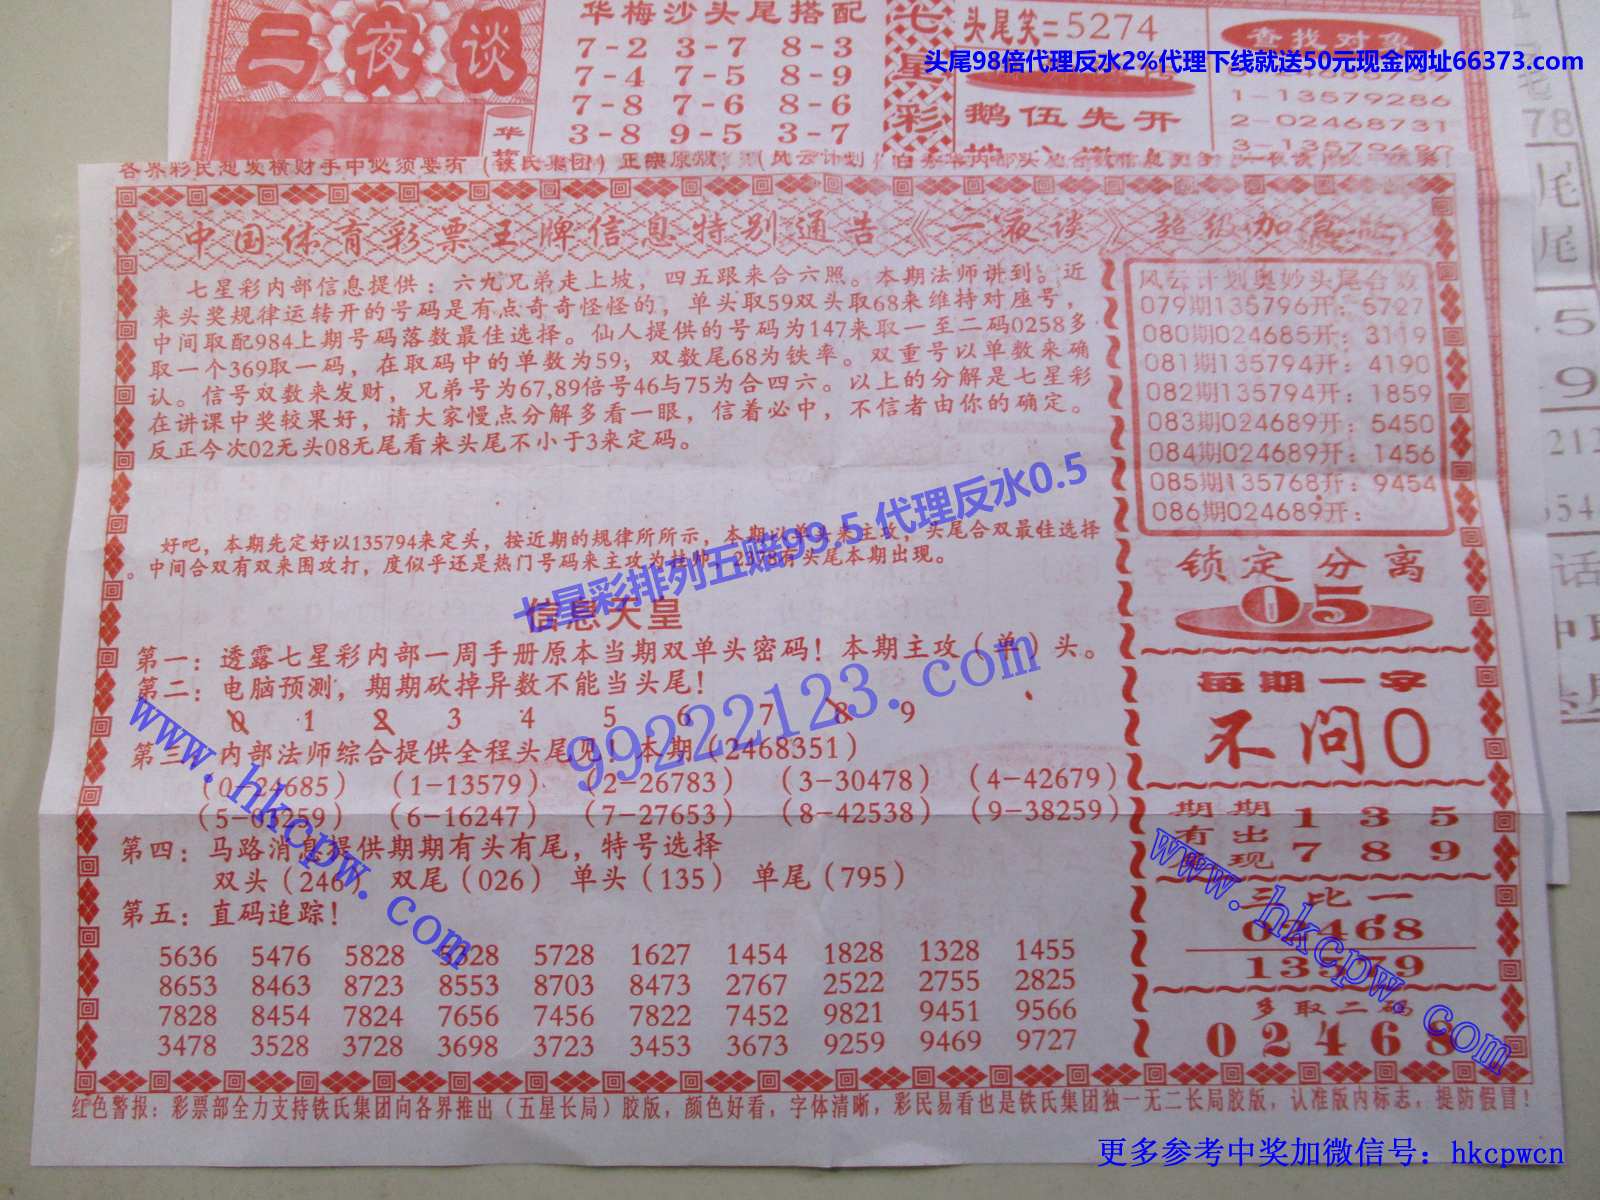 二夜谈
华梅沙头尾搭配
7-2 3-7 8-3
7-4 7-5 8-9
7-8 7-6 8-6
3-8 9-5 3-7
七星彩
头尾笑=5274
鹅伍先开
查找对象
1-13579286
2-02468731
头尾98倍代理反水2%代理下线就送50元现金网址66373.com
78
尾
尾
中国体育彩票王牌信息特别通告《二夜谈》超级加
七星彩内部信息提供：六九兄弟走上坡，四五跟来合六照。本期法师讲到。近
来头奖规律运转开的号码是有点奇奇怪怪的，单头取59双头取68来维持对座号，
中间取配984上期号码落数最佳选择。仙人提供的号码为147来取一至二码0258多
取一个369取一码，在取码中的单数为59；双数尾68为铁率。双重号以单数来确
认。信号双数来发财，兄弟号为67,89倍号46与75为合四六。以上的分解是七星彩
在讲课中奖较果好，请大家慢点分解多看一眼，信着必中，不信者由你的确定。
反正今次02无头08无尾看来头尾不小于3来定码。
好吧，本期先定好以135794来定头，按近期的规律所所示，本期以单头来主攻，头尾合双最佳选择
。中间合双有双来围攻打，度似乎还是热门号码来主攻为挂帅，2378有头尾本期出现。
七星彩排列五赔99.5 代理反水0.5
信息天皇
第一：透露七星彩内部一周手册原本当期双单头密码！本期主攻（单）头。
第二：电脑预测，期期砍掉异数不能当头尾！
0 1 2 3 4 5 6 7 8 9
第三：内部法师综合提供全程头尾见！本期（2468351）
（0-24685） （1-13579） （2-26783） （3-30478） （4-42679）
（6-16247） （7-27653） （8-42538） （9-38259）
第四：马路消息提供期期有头有尾，特号选择
双头（246） 双尾（026） 单头（135） 单尾（795）
第五：直码追踪！
5636 5476 5828 5728 1627 1454 1828 1328 1455
8653 8463 8723 8553 8703 8473 2767 2522 2755 2825
7828 8454 7824 7656 7456 7822 7452 9821 9451 9566
3478 3528 3728 3698 3723 3453 3673 9259 9469 9727
风云计划奥妙头尾合数
079期135796开：5727
080期024685开：3119
081期135794开：4190
082期135794开：1859
083期024689开：5450
084期024689开：1456
085期135768开：9454
086期024689开：
锁定分离
05
每期一字
不问0
期期 1 3 5
有出
现 7 8 9
三比一
02468
13579
多取二码
02468
红色警报：彩票部全力支持铁氏集团向各界推出（五星长局）胶版，颜色好看，字体清晰，彩民易看也是铁氏集团独一无二长局胶版，认准版内标志，提防假冒！
99222123.com
www.hkcpw.com
www.hkcpw.com
更多参考中奖加微信号：hkcpwcn